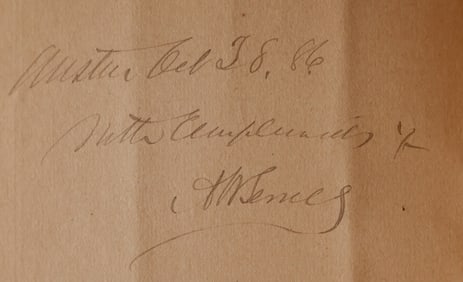 Austin Oct 28, 86.
With Compliments of